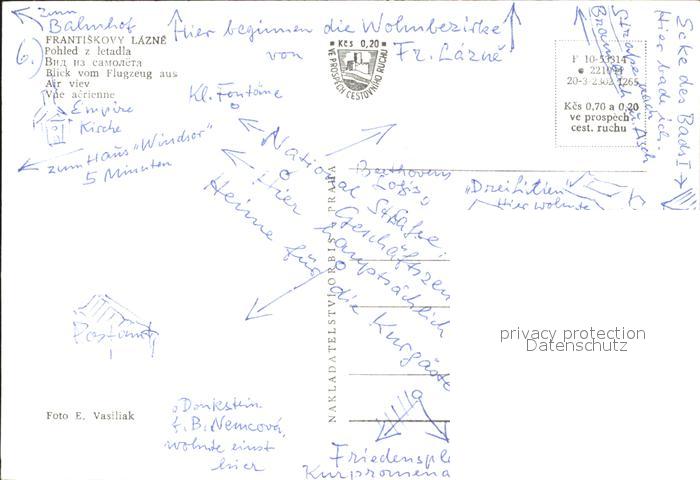 zum
Bahnhof
6.)
Hier beginnen die Wohnbezirke
von Fr. Lázně
FRANTIŠKOVY LÁZNĚ
Pohled z letadla
Вид из самолёта
Blick vom Flugzeug aus
Air viev
Vue aérienne
Kčs 0,20
VE PROSPĚCH CESTOVNÍHO RUCHU
Straße nach
Brambach u. Asch
F 10-53314
20-3-2302 1265
Kčs 0,70 a 0,20
ve prospěch
cest. ruchu
Ecke des Bads I
Hier bade ich.
Kl. Fontäne
Empire
Kirche
zum Haus "Windsor"
5 Minuten
National Straße:
Hier hauptsächlich
Geschäftszen
Heime für die Kurgäste
Beethovens
Logis
"Drei Lilien"
Hier wohnte
NAKLADATELSTVÍ ORBIS PRAHA
Postamt
Foto E. Vasiliak
Denkstein
f. B. Nemcová,
wohnte einst
hier
Friedenspl
Kurpromena
privacy protection
Datenschutz